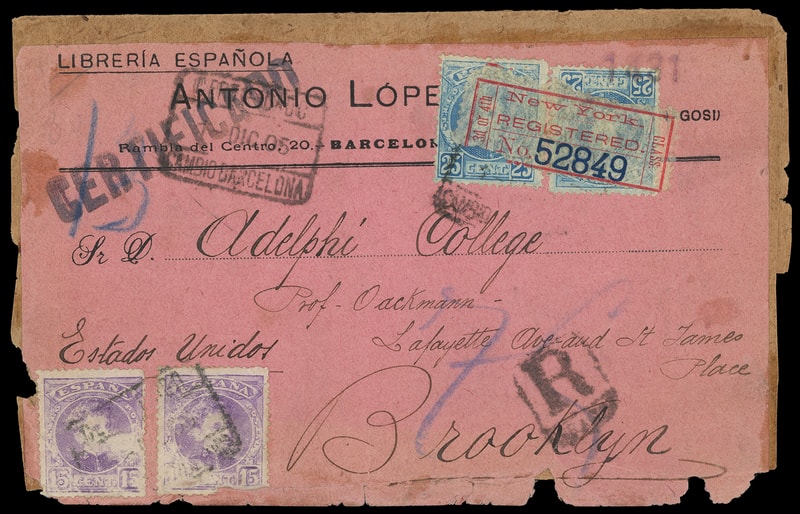 LIBRERÍA ESPAÑOLA
1121
ANTONIO LÓPE
GOSI)
Rambla del Centro, 20.- BARCELON
CERTIFICADO
DIC 05
CAMBIO BARCELONA
25 CENT 25
25 CENT
New York
3d or 4th CLASS
REGISTERED.
No. 52849
Sr D. Adelphi College
Prof - Oackmann -
Lafayette Ave and St James
Place
Estados Unidos
R
Brooklyn
ESPAÑA
15 CENT 15
ESPAÑA
15 CENT 15